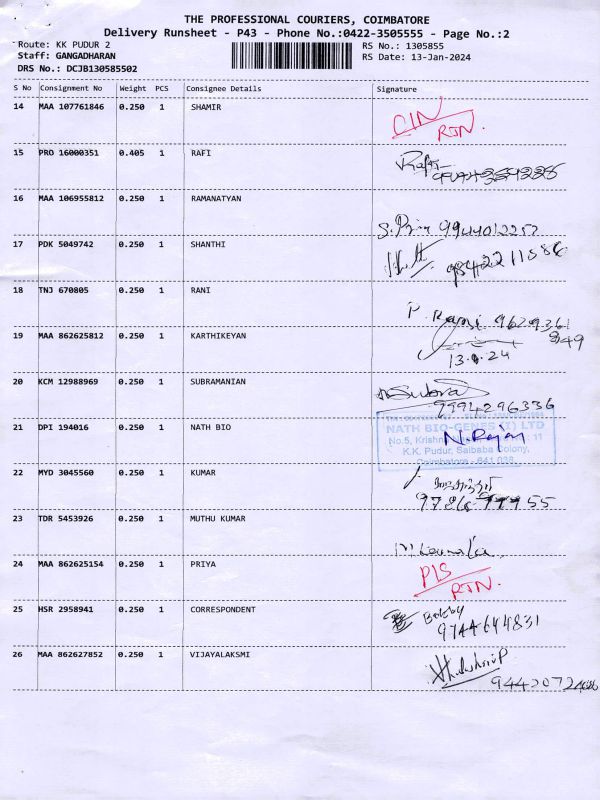 THE PROFESSIONAL COURIERS, COIMBATORE
Delivery Runsheet - P43 - Phone No.:0422-3505555 - Page No.:2
Route: KK PUDUR 2 RS No.: 1305855
Staff: GANGADHARAN RS Date: 13-Jan-2024
DRS No.: DCJB130585502
S No Consignment No Weight PCS Consignee Details Signature
14 MAA 107761846 0.250 1 SHAMIR
CIN
RTN.
15 PRO 16000351 0.405 1 RAFI
Rafi
16 MAA 106955812 0.250 1 RAMANATYAN
S. Priya 9944012257
17 PDK 5049742 0.250 1 SHANTHI
9842211586
18 TNJ 670805 0.250 1 RANI
P. 9629361
19 MAA 862625812 0.250 1 KARTHIKEYAN
13.1.24
20 KCM 12988969 0.250 1 SUBRAMANIAN
Subra
9994296336
21 DPI 194016 0.250 1 NATH BIO
NATH BIO-GENES (I) LTD
No.5, 11
N. Rajan
K.K. Pudur, Saibaba Colony,
Coimbatore - 641 038.
22 MYD 3045560 0.250 1 KUMAR
23 TDR 5453926 0.250 1 MUTHU KUMAR
24 MAA 862625154 0.250 1 PRIYA
P/S
RTN.
25 HSR 2958941 0.250 1 CORRESPONDENT
9744644831
26 MAA 862627852 0.250 1 VIJAYALAKSMI